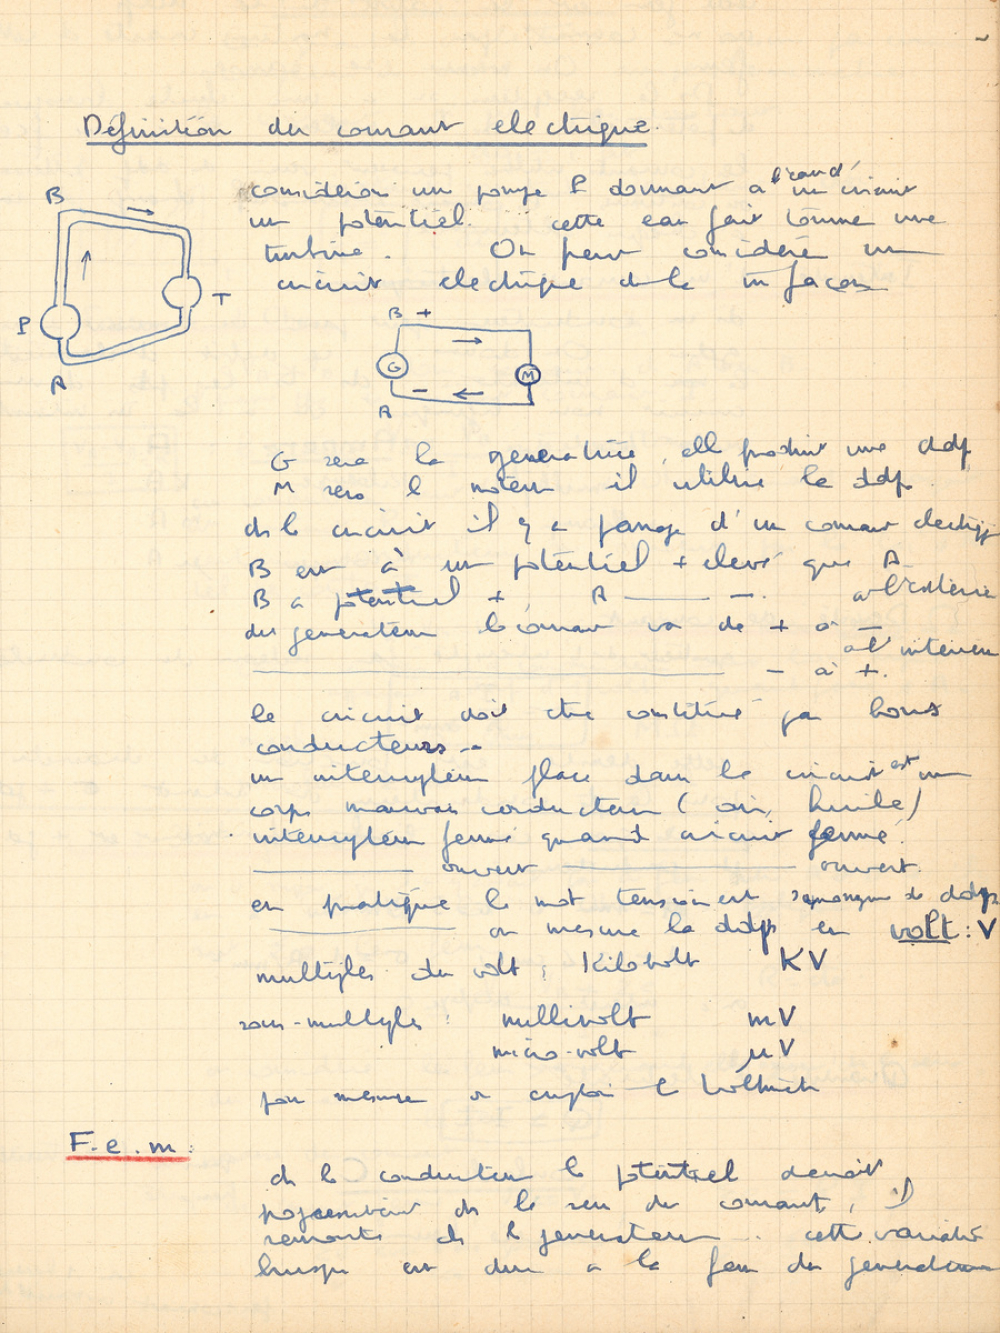 Définition du courant electrique.
considérons un pompe P donnant a un circuit
un potentiel. cette eau fait tourner une
turbine. On peut considérer un
circuit electrique de la m facon
B
P
T
A
B +
G
M
A
-
G sera la generatrice, elle produit une ddp
M sera le moteur il utilise la ddp.
ds le circuit il y a passage d'un courant electrique
B est à un potentiel + elevé que A
B a potentiel + A ——— -. a l'exterieur
du generateur le courant va de + a -
a l'interieur
——————— - a +.
le circuit doit etre constitué par bons
conducteurs --
un interrupteur placé dans le circuit est un
corps mauvais conducteur (air, huile)
interrupteur fermé quand circuit fermé.
———— ouvert ———— ouvert.
en pratique le mot tension est synonyme de ddp
on mesure la ddp en volt : V
multiples du volt : Kilovolt KV
sous-multiples : millivolt mV
micro-volt µV
pour mesurer on emploi le Voltmetre
F.e.m :
ds le conducteur le potentiel decroit
progressivement ds le sens du courant, il
remonte ds le generateur. cette variation
brusque est due a la fem du generateur